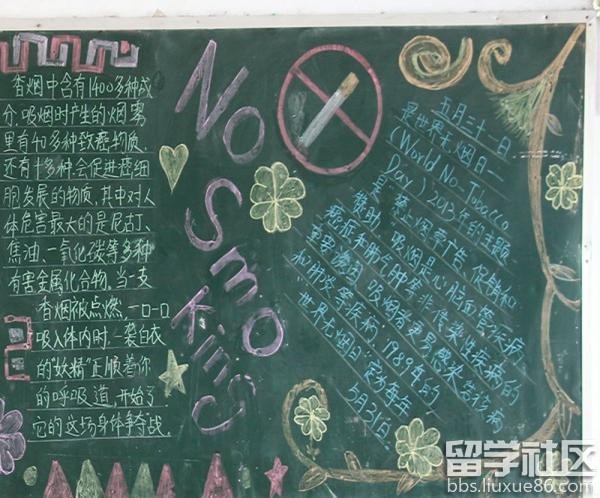 香烟中含有1400多种成
分.吸烟时产生的烟雾
里有40多种致癌物质,
还有十多种会促进癌细
胞发展的物质,其中对人
体危害最大的是尼古丁、
焦油、一氧化碳等多种
有害金属化合物.当一支
香烟被点燃,一口一口
吸入体内时.一袭白衣
的"妖精"正顺着你
的呼吸道,开始了
它的这场身体争夺战.
No Smoking
五月三十一日
是世界无烟日—
(World No-Tobacco
Day) 2013年的主题
是禁止烟草广告、促销和
赞助.吸烟是心脑血管疾病、
癌症和肺气肿等非传染性疾病的
重要诱因,吸烟者更易感染
和肺炎等疾病.1989年的
世界无烟日:定为每年
5月31日.
留学社区
bbs.liuxue86.com